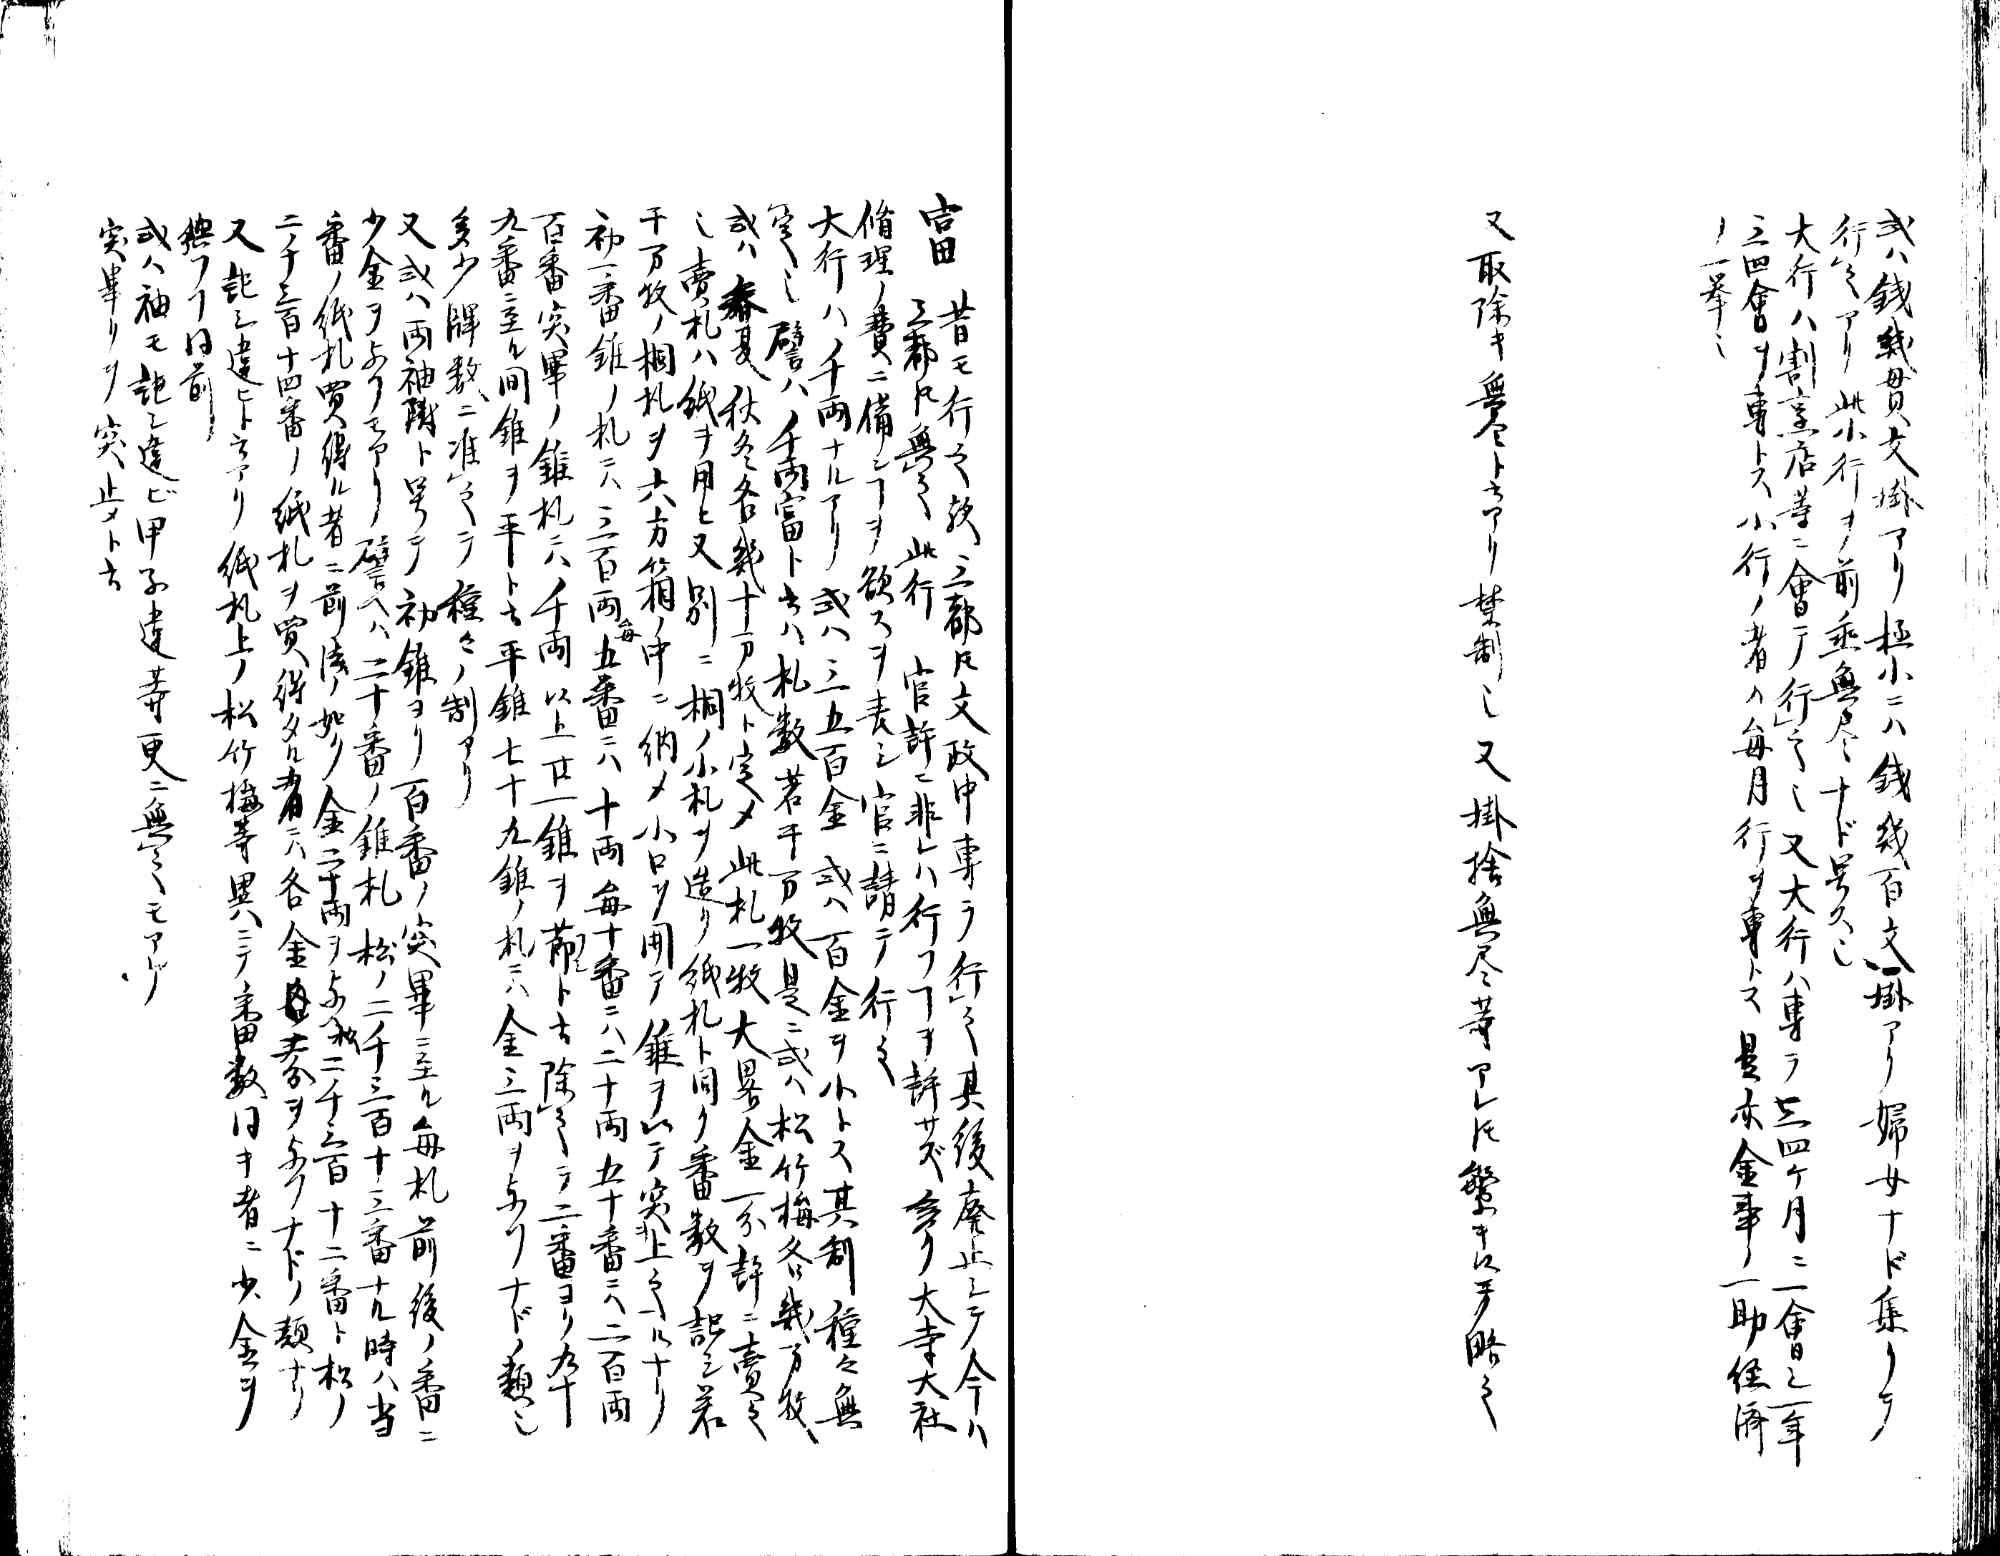 或ハ銭幾貫文掛アリ極小ニハ銭幾百文掛アリ婦女ナド集リテ
行之アリ此小行ヲ前垂無尽ナド号ス也
大行ハ割烹店等ニ會テ行之也又大行ハ専ラ三四ケ月ニ一會ニシ一年
三四會ヲ専トス小行ノ者ハ毎月行ヲ専トス是亦金事ノ一助経済
ノ一挙也
又取除キ無尽ト云アリ禁制也又掛捨無尽等アレ𪜈繁キ以テ略之
富　昔モ行之歟三都𪜈文政中専ラ行之其後廃止シテ今ハ
三都𪜈無之此行　官許ニ非レハ行フヿヲ許サズ多ク大寺大社
修理ノ費ニ備ンヿヲ欲スヲ表シ官ニ請テ行之
大行ハノ千両ナルアリ或ハ三五百金或ハ百金ヲ小トス其制種々無
定也譬ハノ千両富ト云ハ札数若干万枚是ニ或ハ松竹梅各幾万枚
或ハ春夏秋冬各幾十万枚ト定メ此札一枚大畧金一分許ニ賣之
也賣札ハ紙ヲ用ヒ又別ニ桐ノ小札ヲ造リ紙札ト同ク番数ヲ記シ若
干万枚ノ桐札ヲ六方箱ノ中ニ納メ小口ヲ開テ錐ヲ以テ突上之ルナリ
初一番錐ノ札ニハ三百両毎五番ニハ十両毎十番ニハ二十両五十番ニハ二百両
百番突畢ノ錐札ニハ千両以上廿一錐ヲ節ト云除之テ二番ヨリ九十
九番ニ至ル間錐ヲ平ト云平錐七十九錐ノ札ニハ金三両ヲ与フナドノ類也
多少牌数ニ准之テ種々ノ制アリ
又或ハ両袖附ト号テ初錐ヨリ百番ノ突畢ニ至ル毎札前後ノ番ニ
少金ヲ与フモアリ譬ヘハ二十番ノ錐札松ノ二千三百十三番ナル時ハ当
番ノ紙札買得ル者ニ前陳ノ如ク金二十両ヲ与ヘ松二千三百十二番ト松ノ
二ノ千三百十四番ノ紙札ヲ買得タル者ニハ各金壱分ヲ与フナドノ類ナリ
又記シ違ヒト云アリ紙札上ノ松竹梅等異ハニテ番数同キ者ニ少金ヲ
與フヿ同前
或ハ袖モ記シ違ビ甲子違等更ニ無之モアリ
突畢リヲ突止メト云